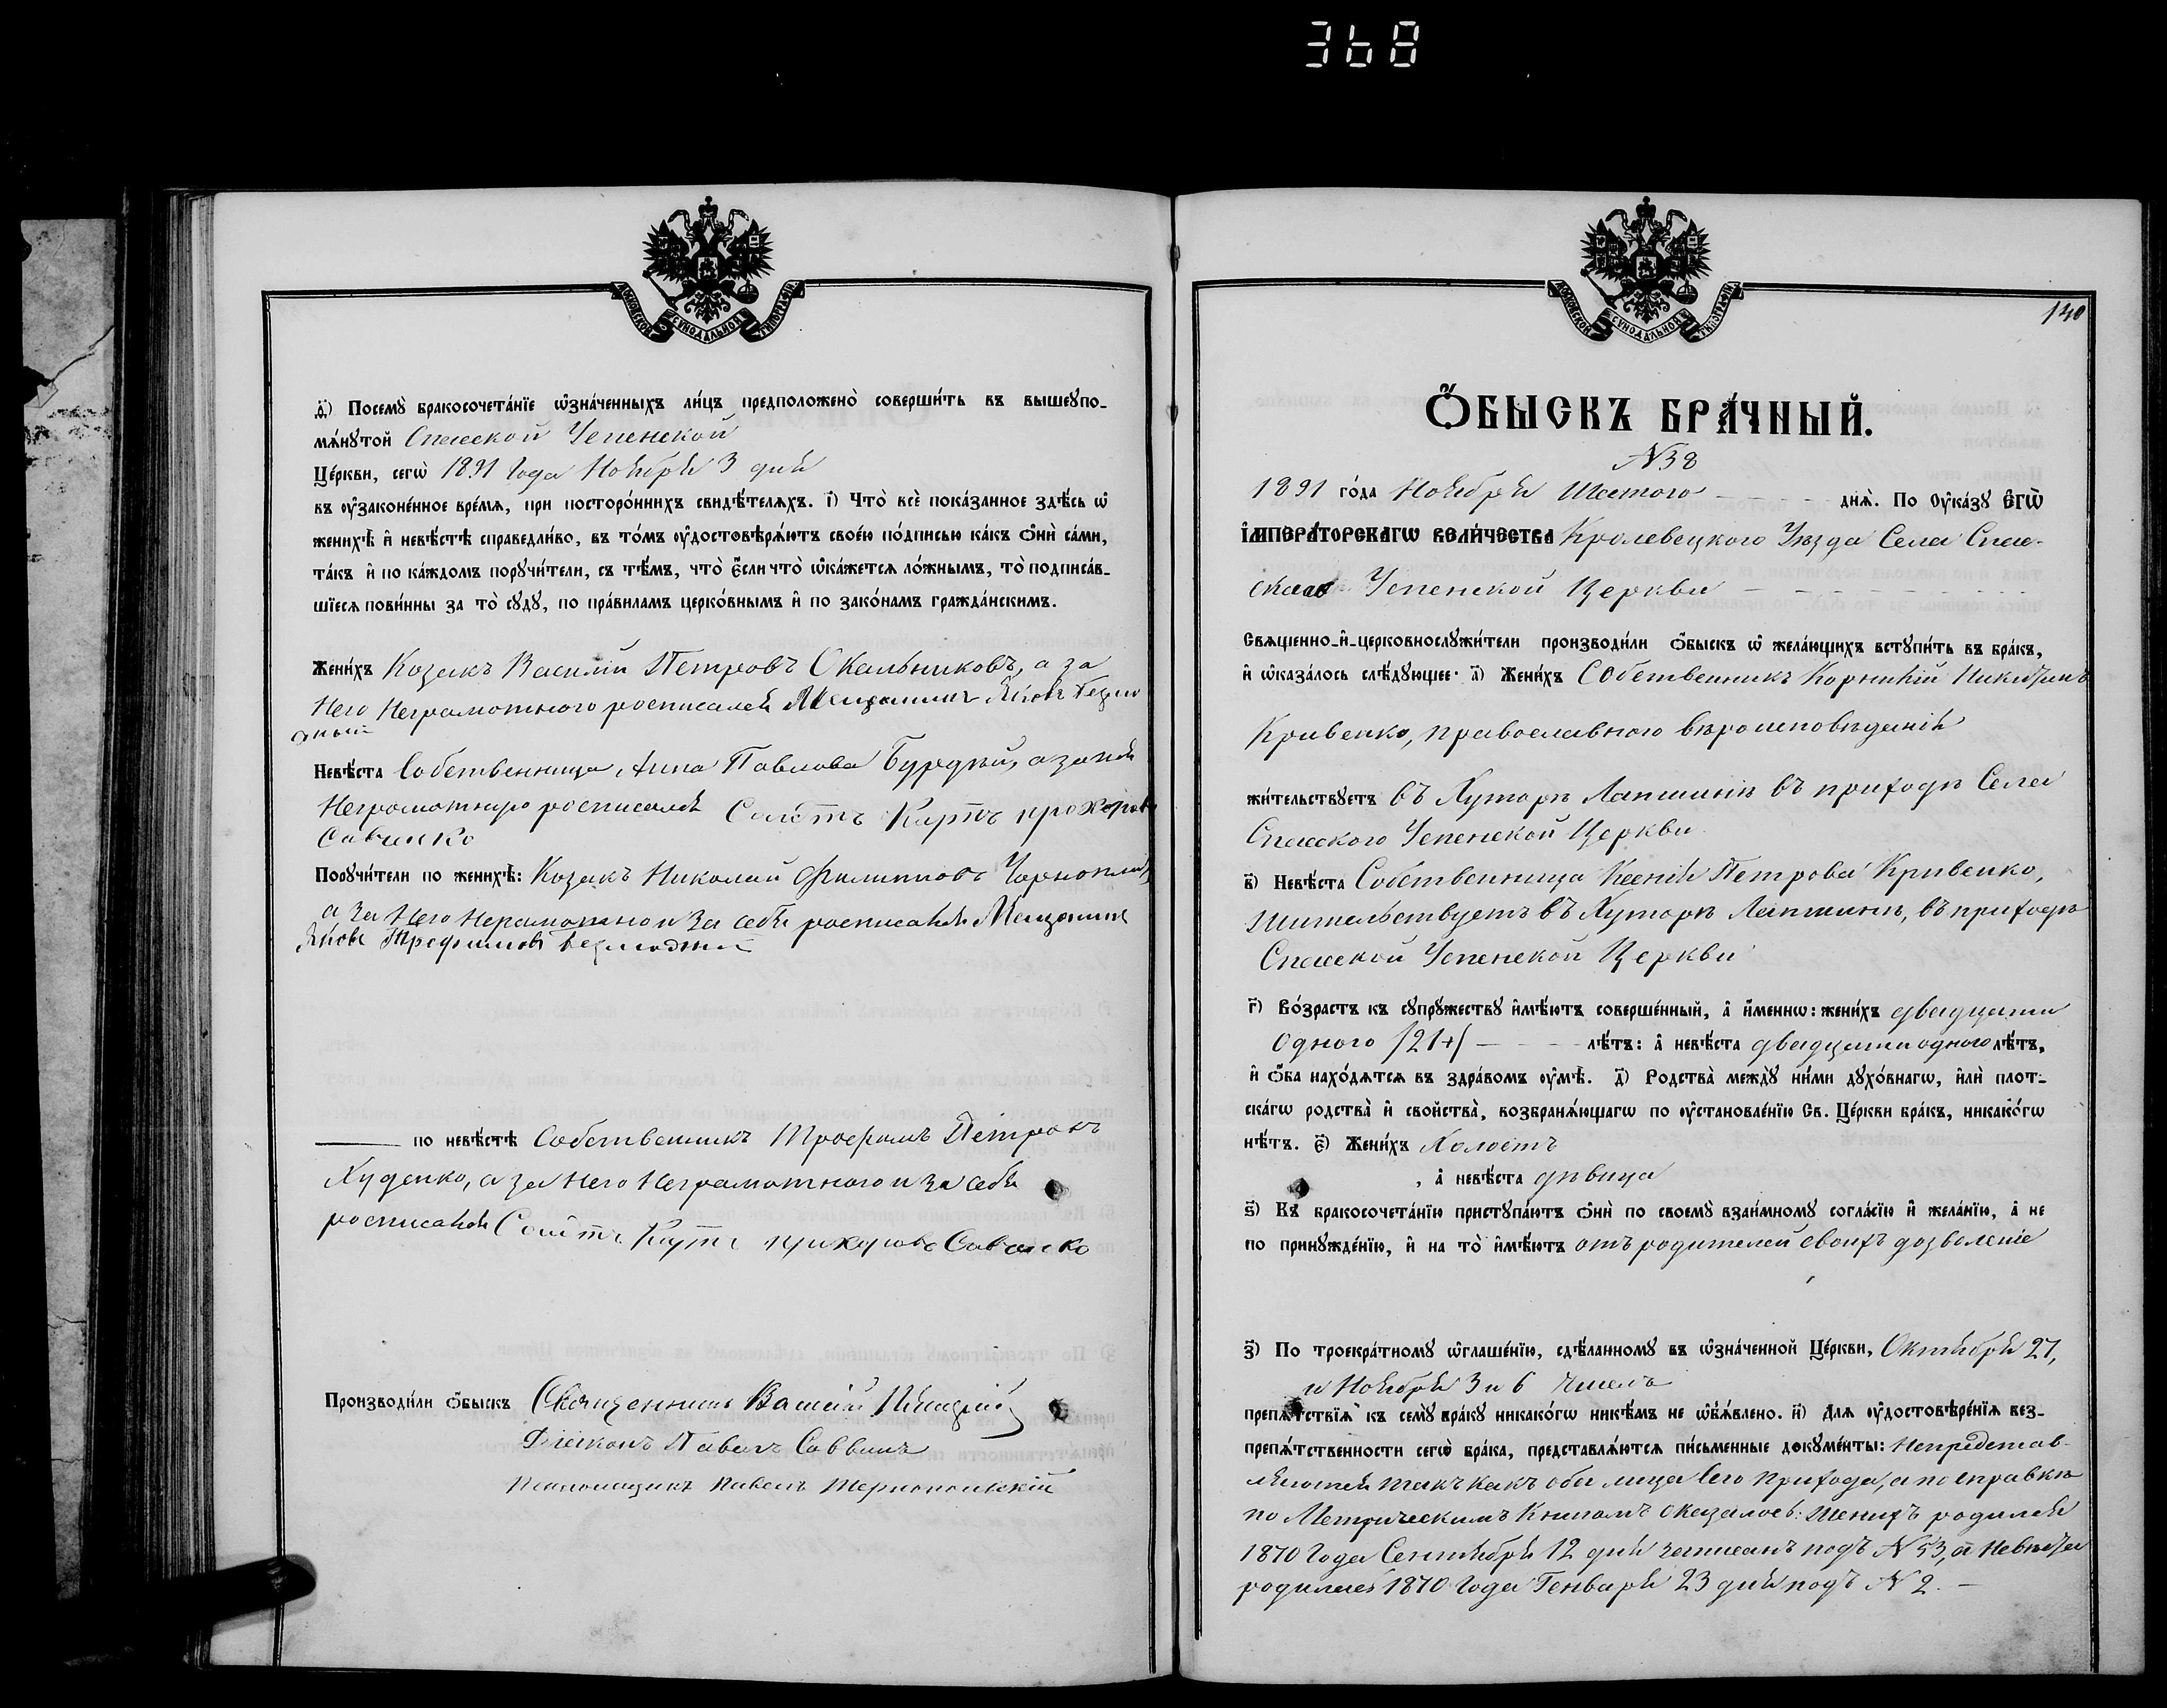 368
МОСКОВСКОЙ СѴНОДАЛЬНОЙ ТИПОГРАФІИ
ѳ҃) Посемꙋ̀ бракосочета́нїе ѡ҆зна́ченныхъ ли́цъ предположено̀ соверши́ть въ вышеꙋпо-
мѧ́нꙋтой Спасской Успенской
Це́ркви, сегѡ̀ 1891 года Ноября 3 дня
въ ᲂу҆законе́нное вре́мѧ, при посторо́ннихъ свидѣ́телѧхъ. і҃) Что̀ всѐ пока́занное здѣ́сь ѡ҆
женихѣ̀ и҆ невѣ́стѣ справедли́во, въ то́мъ ᲂу҆достовѣрѧ́ютъ свое́ю по́дписью ка́къ ѻ҆нѝ са́ми,
та́къ и҆ по ка́ждомъ порꙋчи́тели, съ тѣ́мъ, что̀ є҆́сли что̀ ѡ҆ка́жетсѧ ло́жнымъ, то̀ подписа́в-
шїесѧ пови́нны за то̀ сꙋдꙋ̀, по пра́виламъ церко́внымъ и҆ по зако́намъ гражда́нскимъ.
Жени́хъ Козакъ Василій Петровъ Скальниковъ, а за
него неграмотного росписался Мещанинъ Яковъ
Невѣ́ста Собственница Анна Павлова а за ней
неграмотную росписался Карпъ прохоровъ
Савченко
Порꙋчи́тели по женихѣ̀: Козакъ Николай Филиповъ
а за него неграмотного и за себя росписался Мещанинъ
Яковъ Трофимовъ
по невѣ́стѣ Собственникъ Трофимъ Петровъ
Худенко, а за него неграмотного и за себя
росписался Карпъ прохоровъ Савченко
Производи́ли ѻ҆́быскъ Священникъ Василій
Діаконъ Павелъ Саввинъ
Псаломщикъ Павелъ Тернопольскій
МОСКОВСКОЙ СѴНОДАЛЬНОЙ ТИПОГРАФІИ
140
Ѻ҆́БЫСКЪ БРА́ЧНЫЙ.
№ 38
1891 го́да Ноября Шестого днѧ̀. По Оу҆ка́зꙋ Є҆гѡ̀
І҆мпера́торскагѡ Вели́чества Кролевецкого Уѣзда Села Спас-
ская Успенской Церкви
Свѧще́нно-и҆-церковнослꙋжи́тели производи́ли ѻ҆́быскъ ѡ҆ жела́ющихъ встꙋпи́ть въ бра́къ,
и҆ ѡ҆каза́лось слѣ́дꙋющее: а҃) Жени́хъ Собственникъ Корнилій Никитинъ
Кривенко, православного вѣроисповѣданія
жи́тельствꙋетъ въ Хуторѣ Лапшинѣ въ приходѣ Села
Спасского Успенской Церкви
в҃) Невѣ́ста Собственница Ксенія Петрова Кривенко,
жительствуетъ въ Хуторѣ Лапшинѣ, въ приходѣ
Спасской Успенской Церкви
г҃) Во́зрастъ къ сꙋпрꙋ́жествꙋ и҆мѣ́ютъ соверше́нный, а҆ и҆́меннѡ: жени́хъ двадцати
одного /21/ лѣ́тъ: а҆ невѣ́ста двадцати одного лѣ́тъ,
и҆ ѻ҆́ба нахо́дѧтсѧ въ здра́вомъ ᲂу҆мѣ̀. д҃) Родства̀ междꙋ̀ ни́ми дꙋхо́внагѡ, и҆лѝ плот-
ска́гѡ родства̀ и҆ свойства̀, возбранѧ́ющагѡ по ᲂу҆становле́нїю Св. Це́ркви бра́къ, никако́гѡ
нѣ́тъ. є҃) Жени́хъ Холостъ
, а҆ невѣ́ста дѣвица
ѕ҃) Къ бракосочета́нїю пристꙋпа́ютъ ѻ҆нѝ по своемꙋ̀ взаи́мномꙋ согла́сїю и҆ жела́нїю, а҆ не
по принꙋжде́нїю, и҆ на то̀ и҆мѣ́ютъ отъ родителей своихъ дозволеніе
з҃) По троекра́тномꙋ ѡ҆глаше́нїю, сдѣ́ланномꙋ въ ѡ҆зна́ченной Це́ркви, Октября 27,
и Ноября 3 и 6 числъ
препѧ́тствїѧ къ семꙋ̀ бра́кꙋ никако́гѡ никѣ́мъ не ѡ҆б̾ѧ́влено. и҃) Длѧ ᲂу҆достовѣре́нїѧ без-
препѧ́тственности сегѡ̀ бра́ка, представлѧ́ютсѧ пи́сьменные докꙋме́нты: непредстав-
ляются такъ какъ оба лица сего прихода, а по справкѣ
по Метрическимъ Книгамъ оказалось: женихъ родился
1870 года Сентября 12 дня записанъ подъ № 53, а невѣста
родилась 1870 года Генваря 23 дня подъ № 2. —